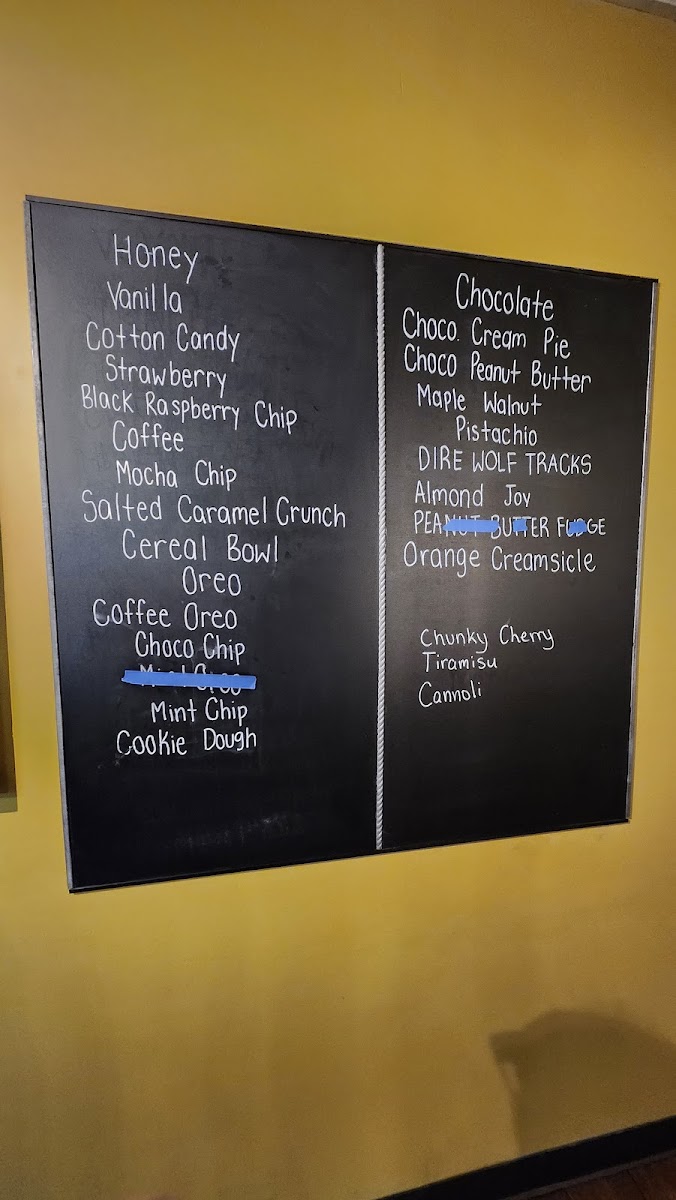 Honey
Vanilla
Cotton Candy
Strawberry
Black Raspberry Chip
Coffee
Mocha Chip
Salted Caramel Crunch
Cereal Bowl
Oreo
Coffee Oreo
Choco Chip
Mint Oreo
Mint Chip
Cookie Dough
Chocolate
Choco. Cream Pie
Choco Peanut Butter
Maple Walnut
Pistachio
DIRE WOLF TRACKS
Almond Joy
PEANUT BUTTER FUDGE
Orange Creamsicle
Chunky Cherry
Tiramisu
Cannoli